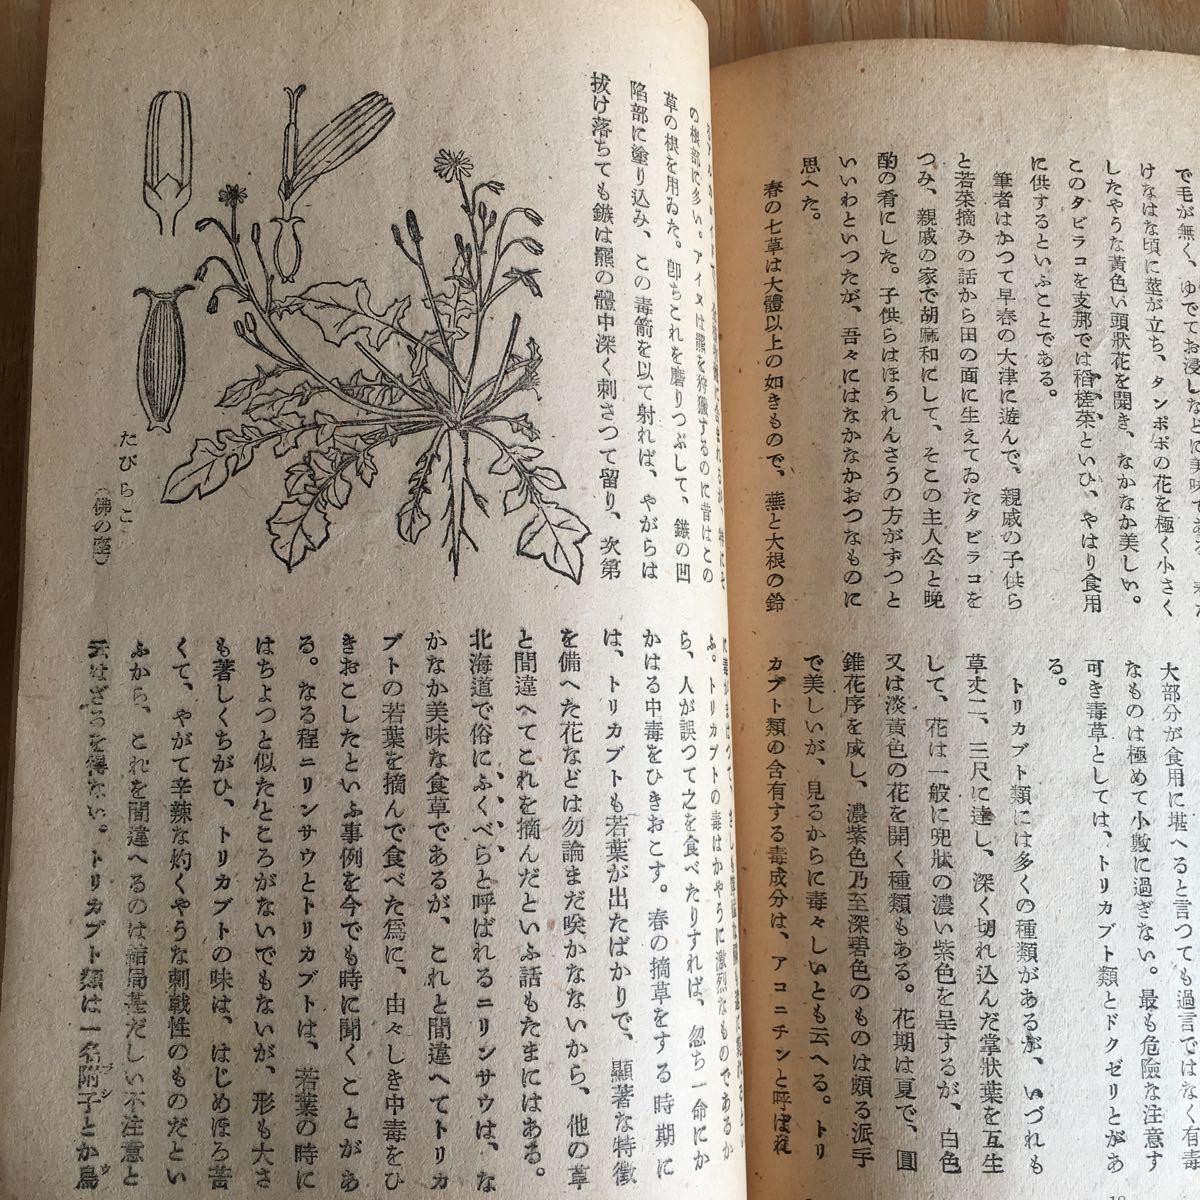 で毛が無く、ゆでてお浸しなどに美味で
けなはな頃に莖が立ち、タンポポの花を極く小さく
したやうな黃色い頭狀花を開き、なかなか美しい。
このタビラコを支那では稻槎菜といひ、やはり食用
に供するといふことである。
筆者はかつて早春の大津に遊んで、親戚の子供ら
と若菜摘みの話から田の面に生えてゐたタビラコを
つみ、親戚の家で胡麻和にして、そこの主人公と晩
酌の肴にした。子供らはほうれんさうの方がずつと
いいわといつたが、吾々にはなかなかおつなものに
思へた。
春の七草は大體以上の如きもので、蕪と大根の鈴
大部分が食用に堪へると言つても過言ではなく有毒
なものは極めて小數に過ぎない。最も危險な注意す
可き毒草としては、トリカブト類とドクゼリとがあ
る。
トリカブト類には多くの種類があるが、いづれも
草丈二、三尺に達し、深く切れ込んだ掌狀葉を互生
して、花は一般に兜狀の濃い紫色を呈するが、白色
又は淡黃色の花を開く種類もある。花期は夏で、圓
錐花序を成し、濃紫色乃至深碧色のものは頗る派手
で美しいが、見るからに毒々しいとも云へる。トリ
カブト類の含有する毒成分は、アコニチンと呼ばれ
の根部に多い。アイヌは羆を狩獵するのに昔はこの
草の根を用ゐた。卽ちこれを磨りつぶして、鏃の凹
陷部に塗り込み、この毒箭を以て射れば、やがらは
拔け落ちても鏃は羆の體中深く刺さつて留り、次第
たびらこ
(佛の座)
ふ。トリカブトの毒はかやうに激烈なものであるか
ら、人が誤つて之を食べたりすれば、忽ち一命にか
かはる中毒をひきおこす。春の摘草をする時期に
は、トリカブトも若葉が出たばかりで、顯著な特徵
を備へた花などは勿論まだ咲かないから、他の草
と間違へてこれを摘んだといふ話もたまにはある。
北海道で俗にふくべらと呼ばれるニリンサウは、な
かなか美味な食草であるが、これと間違へてトリカ
ブトの若葉を摘んで食べた爲に、由々しき中毒をひ
きおこしたといふ事例を今でも時に聞くことがあ
る。なる程ニリンサウとトリカブトは、若葉の時に
はちよつと似たところがないでもないが、形も大さ
も著しくちがひ、トリカブトの味は、はじめほろ苦
くて、やがて辛辣な灼くやうな刺戟性のものだとい
ふから、これを間違へるのは結局甚だしい不注意と
云はざるを得ない。トリカブト類は一名附子とか烏